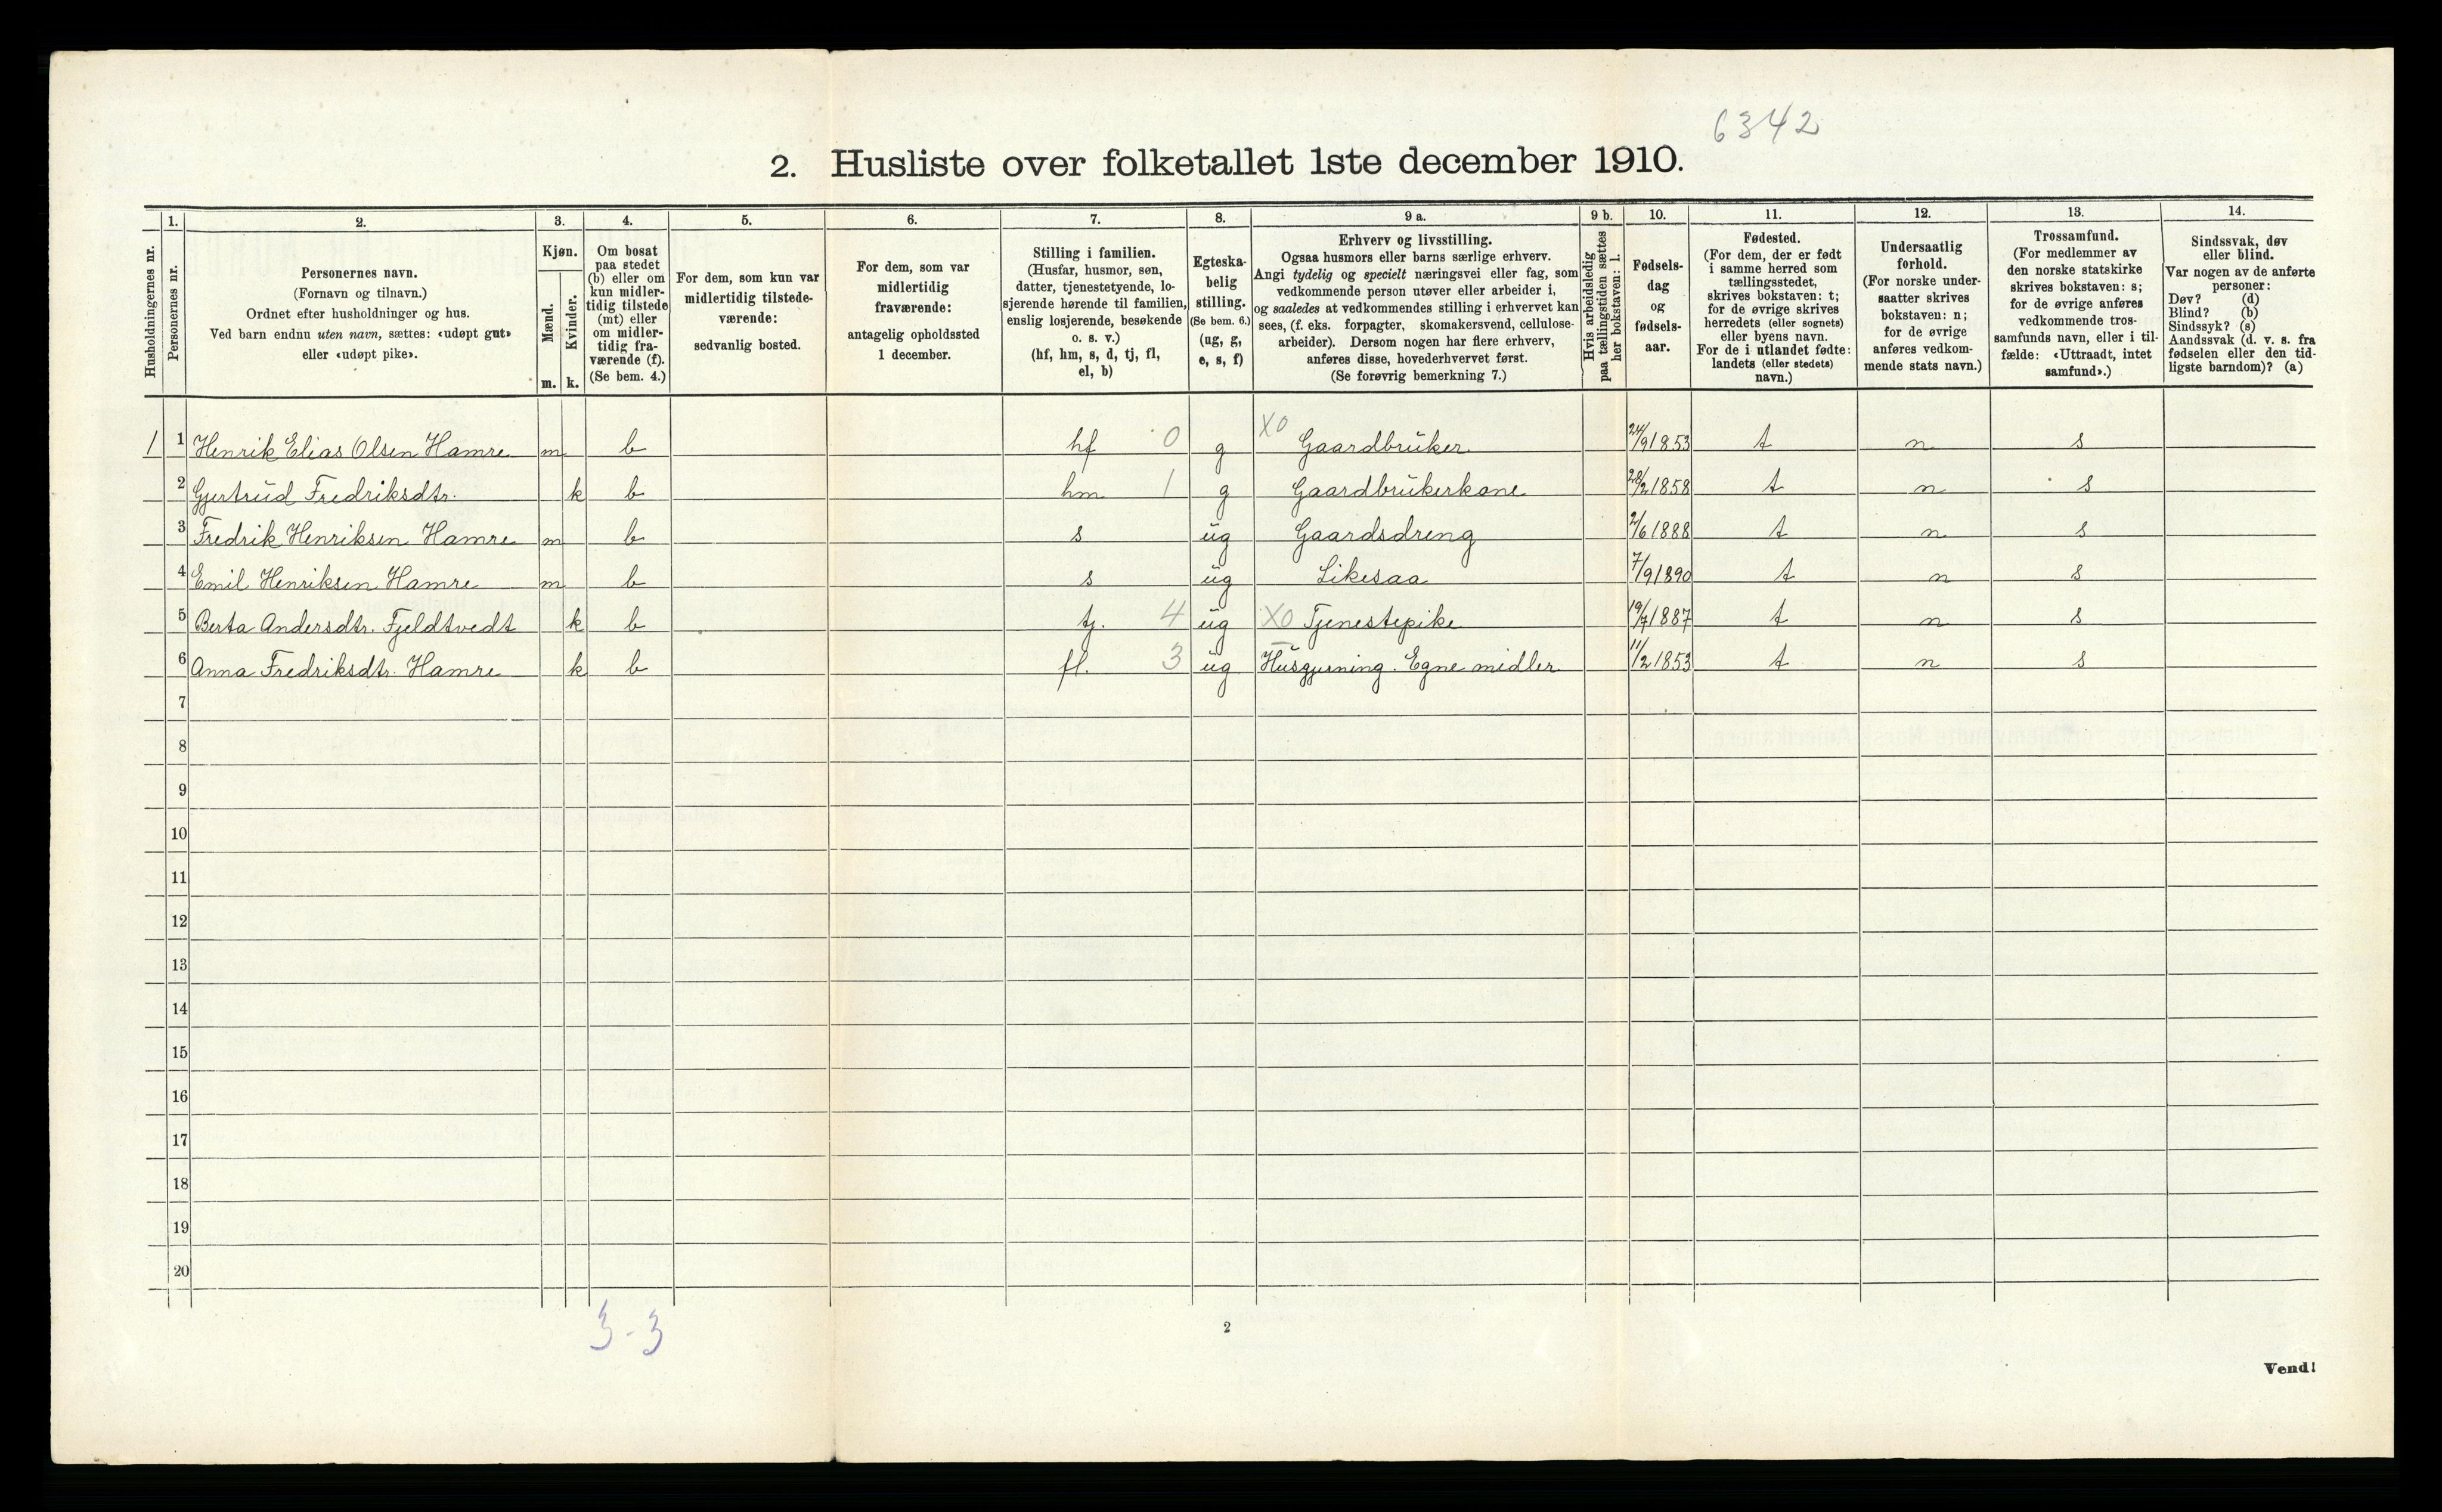 6342
2. Husliste over folketallet 1ste december 1910.
1. 2. 3. 4. 5. 6. 7. 8. 9 a. 9 b. 10. 11. 12. 13. 14.
Husholdningernes nr.
Personernes nr.
Personernes navn.
(Fornavn og tilnavn.)
Ordnet efter husholdninger og hus.
Ved barn endnu uten navn, sættes: «udøpt gut»
eller «udøpt pike».
Kjøn.
Mænd.
Kvinder.
m. k.
Om bosat
paa stedet
(b) eller om
kun midler-
tidig tilstede
(mt) eller
om midler-
tidig fra-
værende (f).
(Se bem. 4.)
For dem, som kun var
midlertidig tilstede-
værende:
sedvanlig bosted.
For dem, som var
midlertidig
fraværende:
antagelig opholdssted
1 december.
Stilling i familien.
(Husfar, husmor, søn,
datter, tjenestetyende, lo-
sjerende hørende til familien,
enslig losjerende, besøkende
o. s. v.)
(hf, hm, s, d, tj, fl,
el, b)
Egteska-
belig
stilling.
(Se bem. 6.)
(ug, g,
e, s, f)
Erhverv og livsstilling.
Ogsaa husmors eller barns særlige erhverv.
Angi tydelig og specielt næringsvei eller fag, som
vedkommende person utøver eller arbeider i,
og saaledes at vedkommendes stilling i erhvervet kan
sees, (f. eks. forpagter, skomakersvend, cellulose-
arbeider). Dersom nogen har flere erhverv,
anføres disse, hovederhvervet først.
(Se forøvrig bemerkning 7.)
Hvis arbeidsledig
paa tællingstiden sættes
her bokstaven: l.
Fødsels-
dag
og
fødsels-
aar.
Fødested.
(For dem, der er født
i samme herred som
tællingsstedet,
skrives bokstaven: t;
for de øvrige skrives
herredets (eller sognets)
eller byens navn.
For de i utlandet fødte:
landets (eller stedets)
navn.)
Undersaatlig
forhold.
(For norske under-
saatter skrives
bokstaven: n;
for de øvrige
anføres vedkom-
mende stats navn.)
Trossamfund.
(For medlemmer av
den norske statskirke
skrives bokstaven: s;
for de øvrige anføres
vedkommende tros-
samfunds navn, eller i til-
fælde: «Uttraadt, intet
samfund».)
Sindssvak, døv
eller blind.
Var nogen av de anførte
personer:
Døv? (d)
Blind? (b)
Sindssyk? (s)
Aandssvak (d. v. s. fra
fødselen eller den tid-
ligste barndom)? (a)
1 1 Henrik Elias Olsen Hamre m b hf 0 g XO Gaardbruker 24/9 1853 t n s
2 Gjertrud Fredriksdtr. k b hm 1 g Gaardbrukerkone 28/2 1858 t n s
3 Fredrik Henriksen Hamre m b s ug Gaardsdreng 2/6 1888 t n s
4 Emil Henriksen Hamre m b s ug Likesaa 7/9 1890 t n s
5 Berta Andersdtr. Fjeldtvedt k b tj. 4 ug XO Tjenestepike 19/7 1887 t n s
6 Anna Fredriksdtr. Hamre k b fl. 3 ug Husgjerning. Egne midler 11/2 1853 t n s
7
8
9
10
11
12
13
14
15
16
17
18
19
20
3-3
2
Vend!